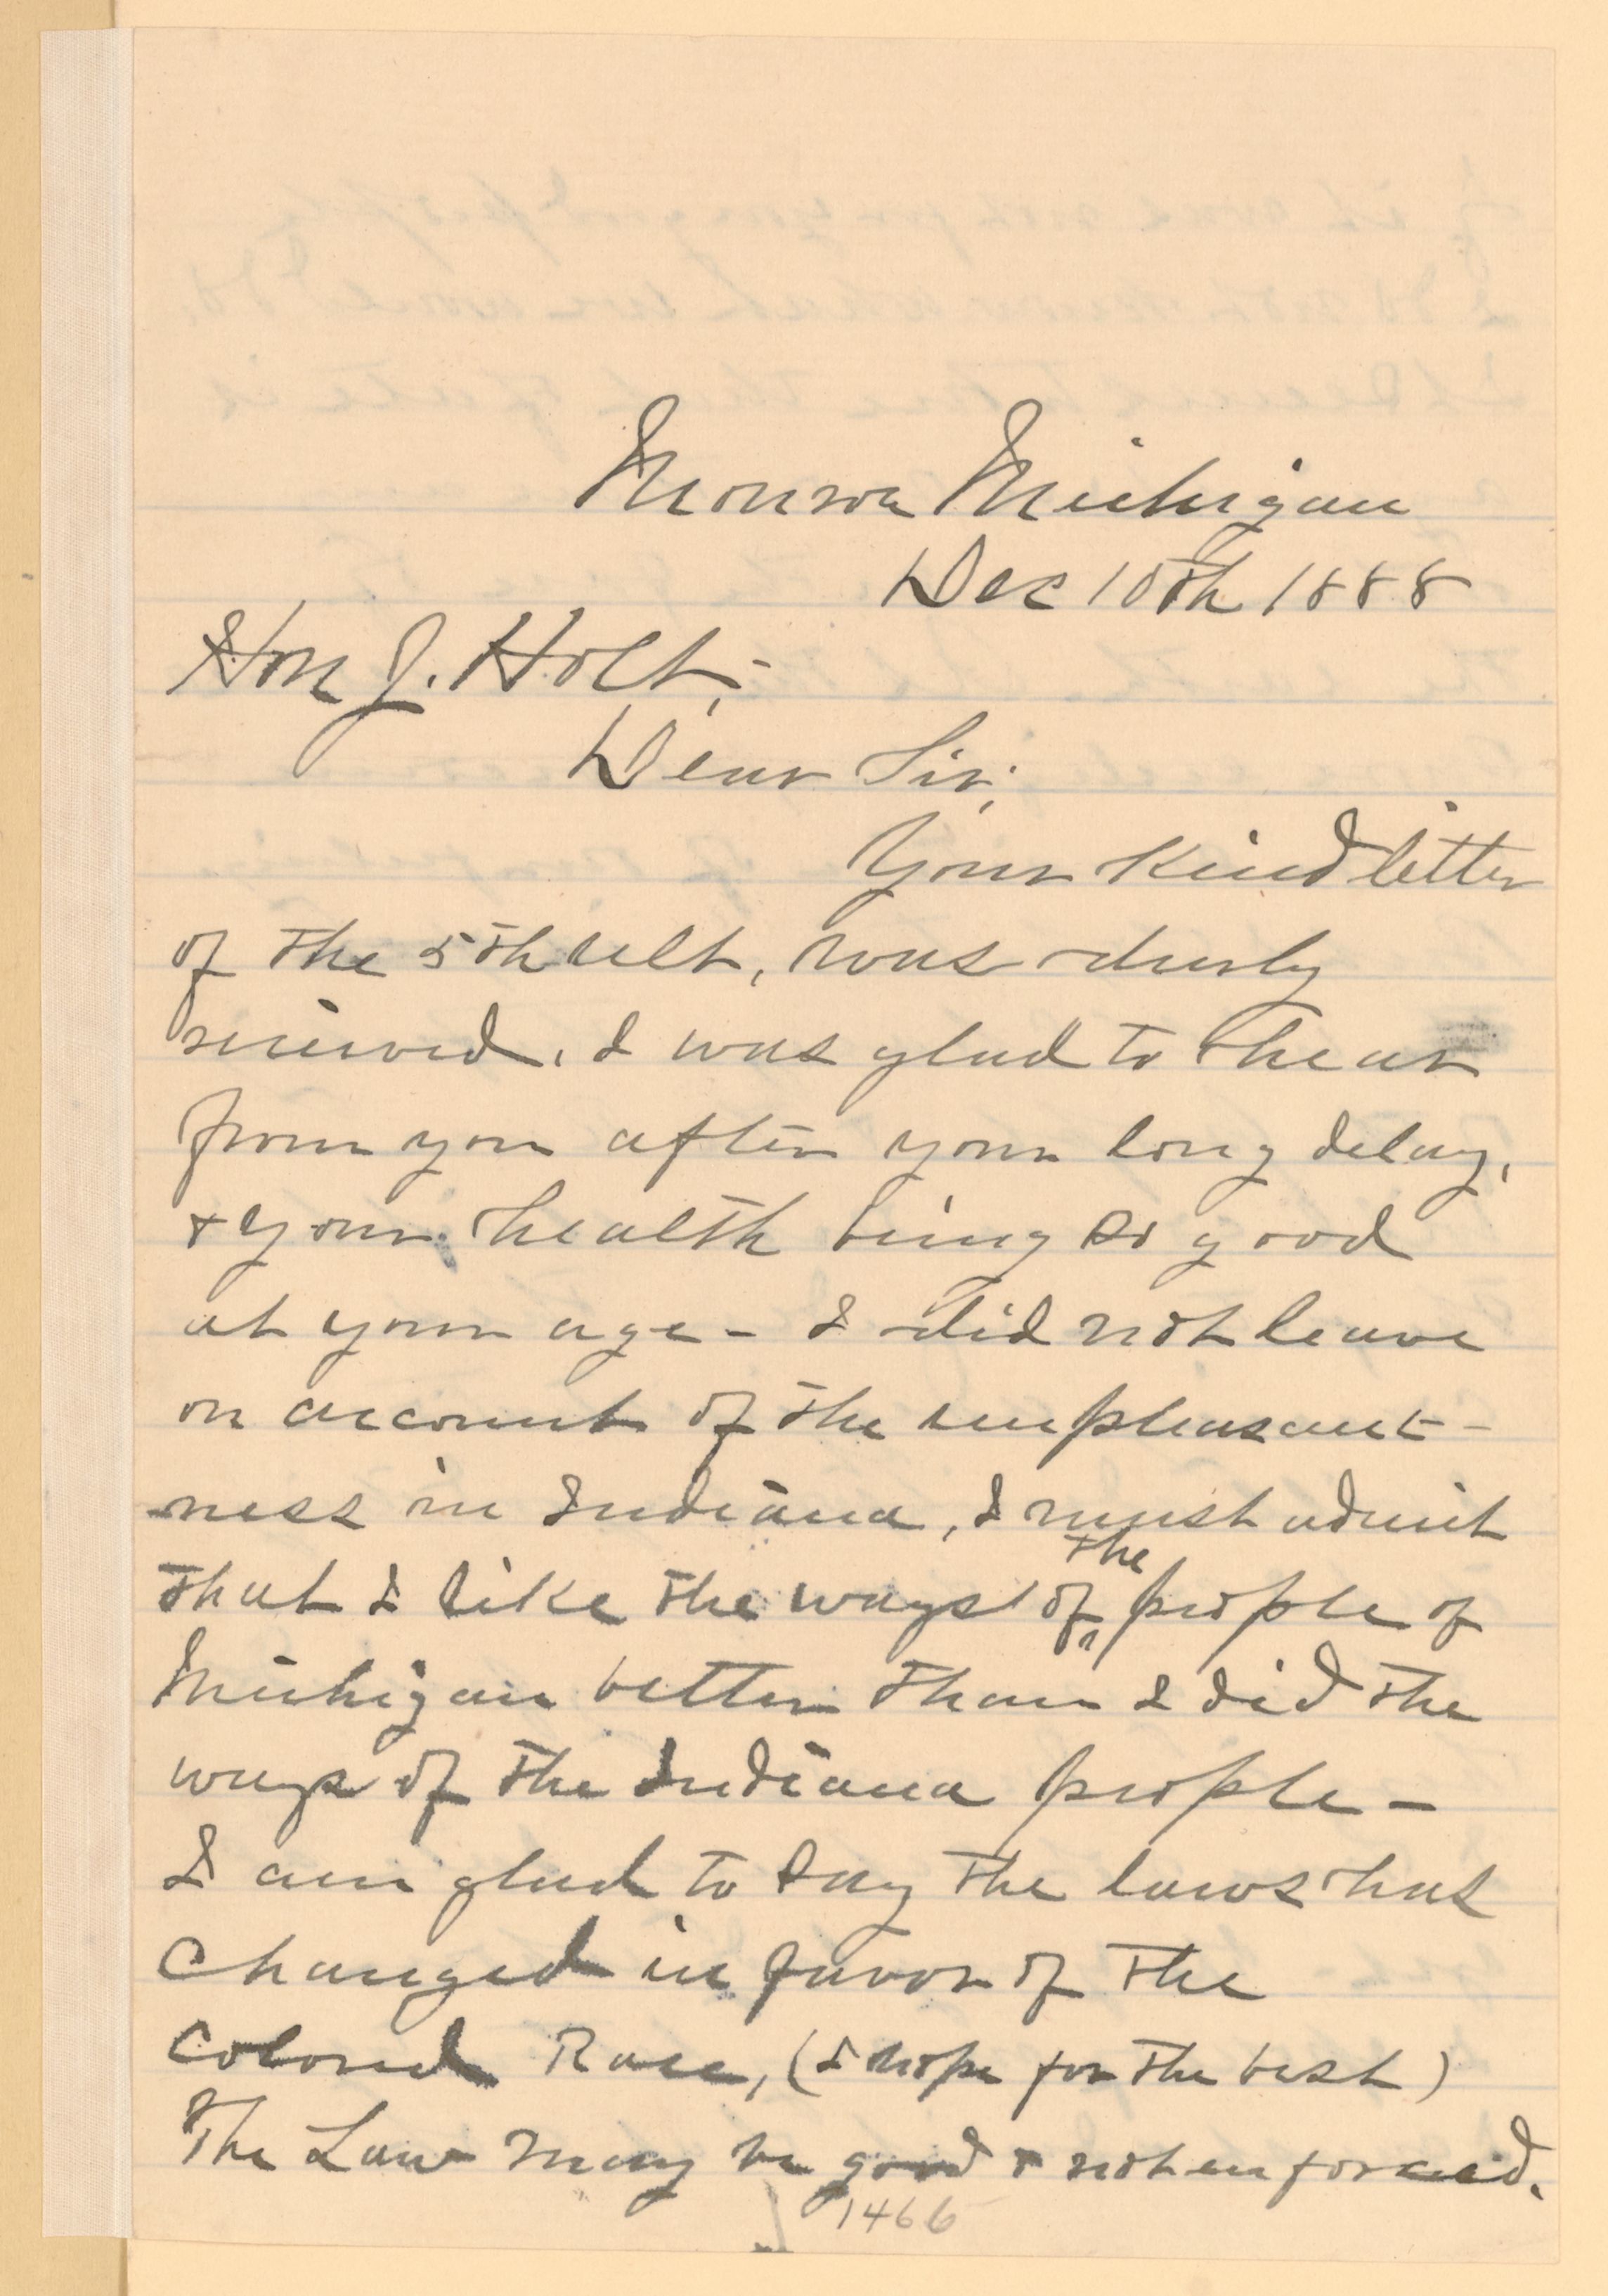 Monroe Michigan
Dec 10th 1888
Hon J. Holt,-
Dear Sir;
Your Kind letter
of the 5th ult, was duly
recieved. I was glad to hear
from you after your long delay,
& your health being so good
at your age - I did not leave
on account of the unpleasant-
ness in Indiana, I must admit
that I like the ways of the people of
Michigan better than I did the
ways of the Indiana people -
I am glad to say the laws has
changed in favor of the
Colored Race, (I hope for the best)
The Law may be good & not enforced.
1466